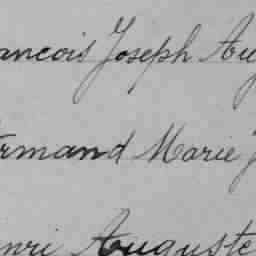 ancois Joseph Au
rmand Marie J
enri Auguste